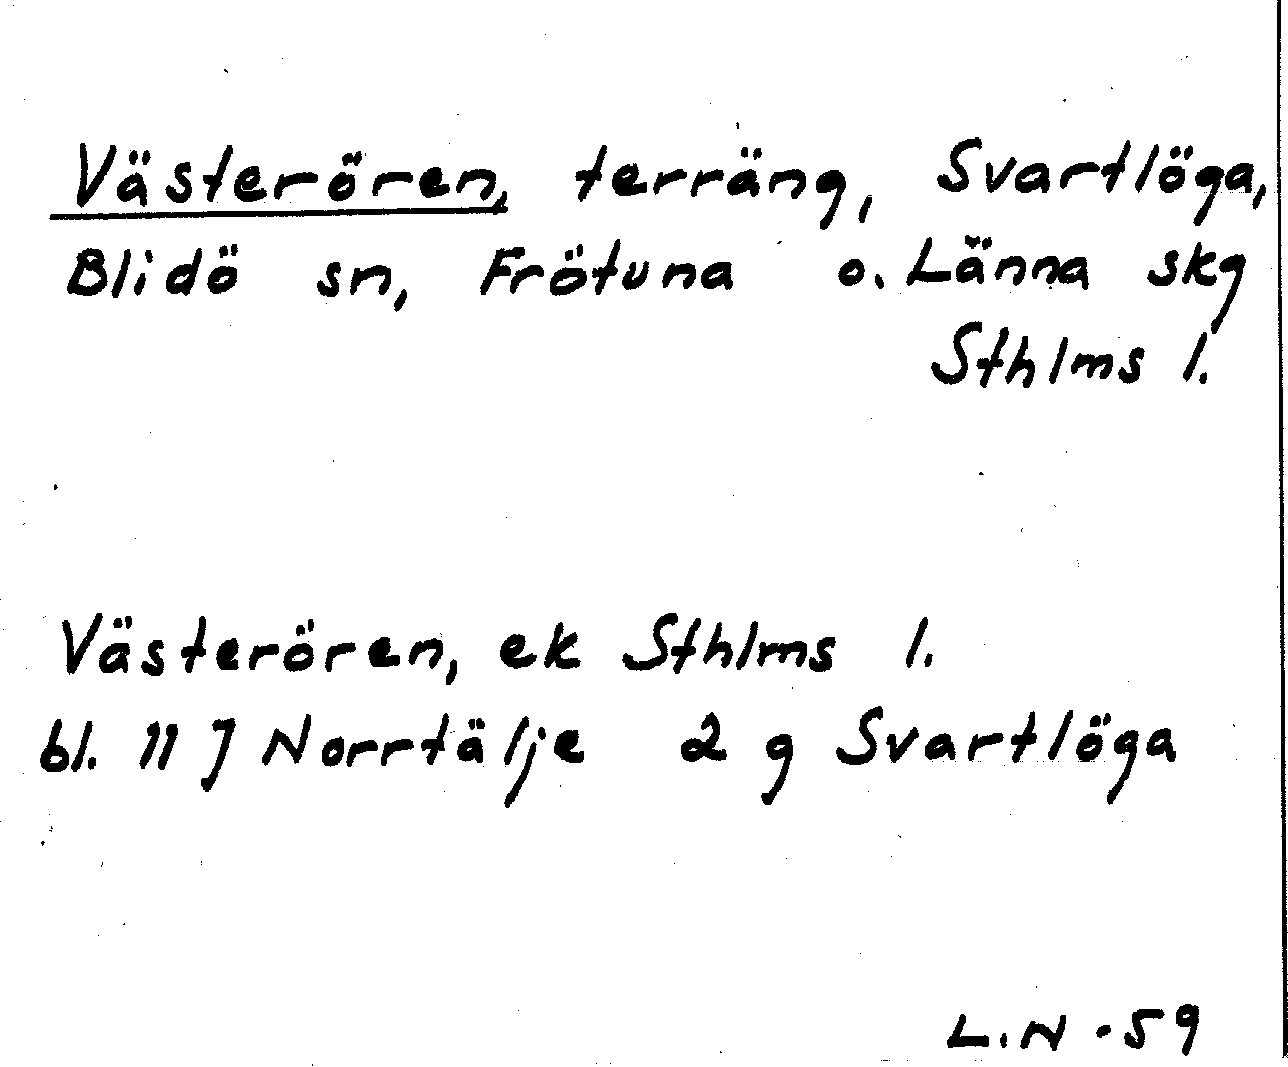 Västerören, terräng, Svartlöga,
Blidö sn, Frötuna o. Länna skg
Sthlms l.
Västerören, ek Sthlms l.
bl. 11 J Norrtälje 2 g Svartlöga
L.N -59